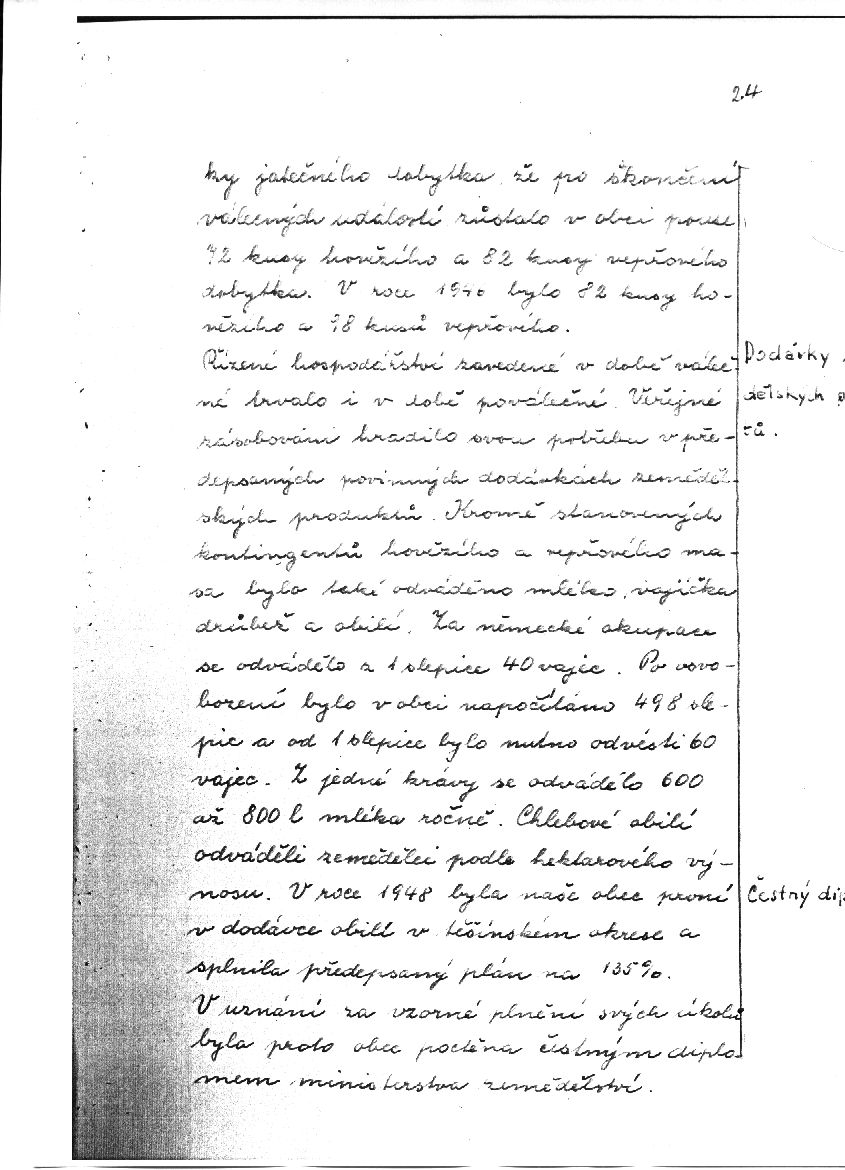 24
ky jatečného dobytka, že po skončení
válečných událostí zůstalo v obci pouze
72 kusy hovězího a 82 kusy vepřového
dobytka. V roce 1946 bylo 82 kusy ho-
vězího a 98 kusů vepřového.
Řízené hospodářství zavedené v době váleč-
né trvalo i v době poválečné. Veřejné
zásobování hradilo svou potřebu v pře-
depsaných povinných dodávkách zeměděl-
ských produktů. Kromě stanovených
kontingentů hovězího a vepřového ma-
sa bylo také odváděno mléko, vajíčka
drůbež a obilí. Za německé okupace
se odvádělo z 1 slepice 40 vajec. Po osvo-
bození bylo v obci napočítáno 498 sle-
pic a od 1 slepice bylo nutno odvésti 60
vajec. Z jedné krávy se odvádělo 600
až 800 l mléka ročně. Chlebové obilí
odváděli zemědělci podle hektarového vý-
nosu. V roce 1948 byla naše obec první
v dodávce obilí v těšínském okrese a
splnila předepsaný plán na 135%.
V uznání za vzorné plnění svých úkolů
byla proto obec poctěna čestným diplo-
mem ministerstva zemědělství.
Dodávky
dělských
tů.
Čestný dip